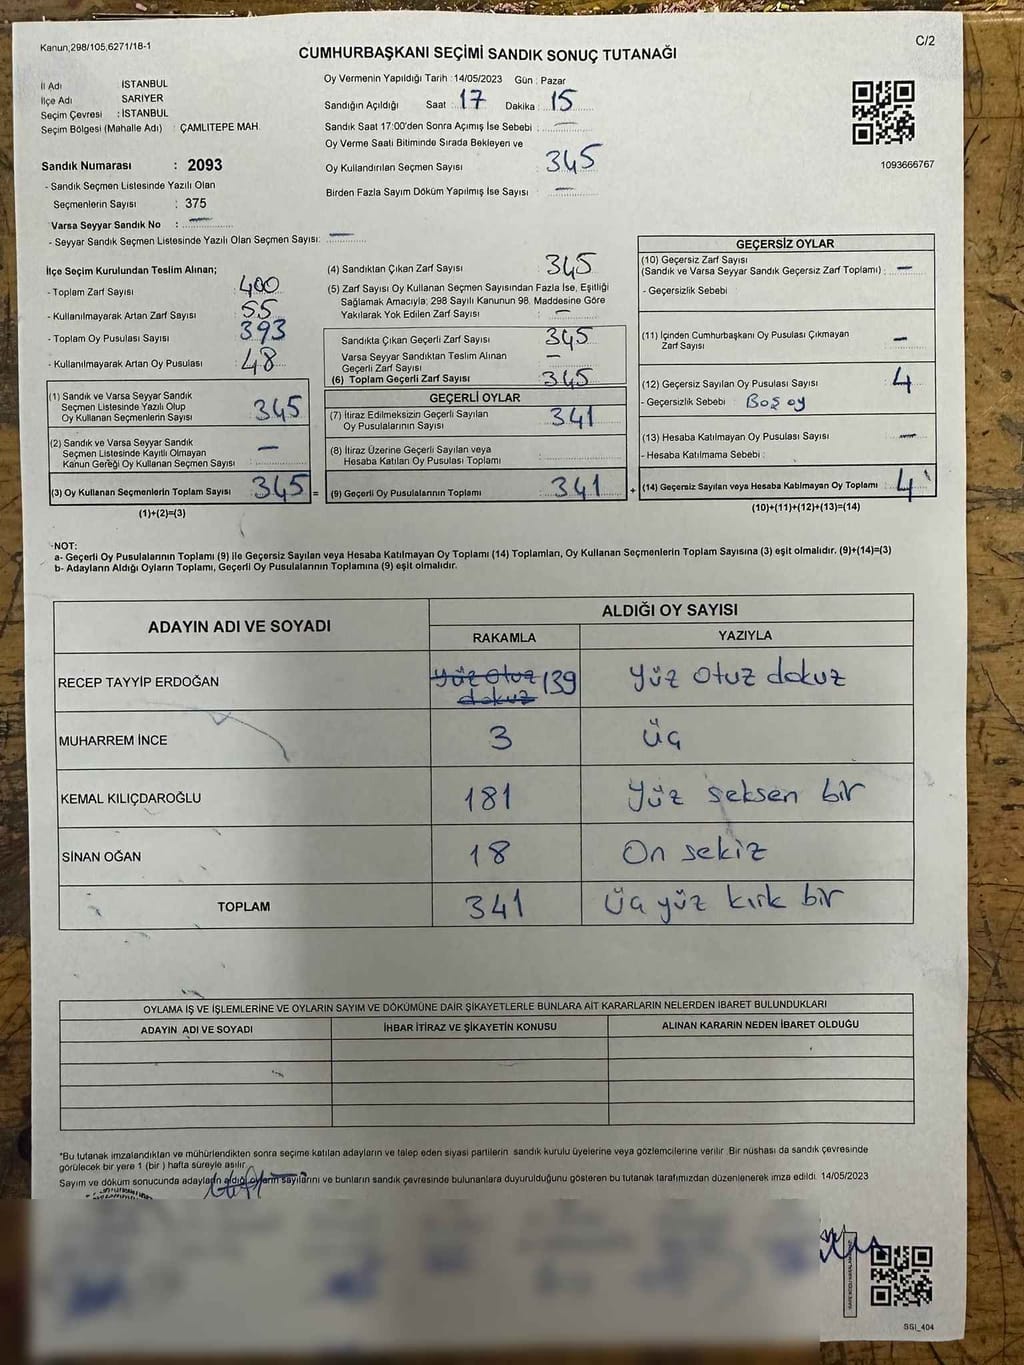 Kanun,298/105,6271/18-1
C/2
CUMHURBAŞKANI SEÇİMİ SANDIK SONUÇ TUTANAĞI
İl Adı İSTANBUL
İlçe Adı SARIYER
Seçim Çevresi : İSTANBUL
Seçim Bölgesi (Mahalle Adı) : ÇAMLITEPE MAH.
Sandık Numarası : 2093
- Sandık Seçmen Listesinde Yazılı Olan
Seçmenlerin Sayısı : 375
Varsa Seyyar Sandık No : —
- Seyyar Sandık Seçmen Listesinde Yazılı Olan Seçmen Sayısı: —
Oy Vermenin Yapıldığı Tarih : 14/05/2023 Gün : Pazar
Sandığın Açıldığı Saat : 17 Dakika : 15
Sandık Saat 17:00'den Sonra Açımış İse Sebebi : —
Oy Verme Saati Bitiminde Sırada Bekleyen ve
Oy Kullandırılan Seçmen Sayısı : 345
Birden Fazla Sayım Döküm Yapılmış İse Sayısı : —
1093666767
İlçe Seçim Kurulundan Teslim Alınan;
- Toplam Zarf Sayısı : 400
- Kullanılmayarak Artan Zarf Sayısı : 55
- Toplam Oy Pusulası Sayısı : 393
- Kullanılmayarak Artan Oy Pusulası : 48
(1) Sandık ve Varsa Seyyar Sandık
Seçmen Listesinde Yazılı Olup
Oy Kullanan Seçmenlerin Sayısı : 345
(2) Sandık ve Varsa Seyyar Sandık
Seçmen Listesinde Kayıtlı Olmayan
Kanun Gereği Oy Kullanan Seçmen Sayısı : —
(3) Oy Kullanan Seçmenlerin Toplam Sayısı : 345 =
(1)+(2)=(3)
(4) Sandıktan Çıkan Zarf Sayısı : 345
(5) Zarf Sayısı Oy Kullanan Seçmen Sayısından Fazla İse, Eşitliği
Sağlamak Amacıyla; 298 Sayılı Kanunun 98. Maddesine Göre
Yakılarak Yok Edilen Zarf Sayısı : —
Sandıkta Çıkan Geçerli Zarf Sayısı : 345
Varsa Seyyar Sandıktan Teslim Alınan
Geçerli Zarf Sayısı : —
(6) Toplam Geçerli Zarf Sayısı : 345
GEÇERLİ OYLAR
(7) İtiraz Edilmeksizin Geçerli Sayılan
Oy Pusulalarının Sayısı : 341
(8) İtiraz Üzerine Geçerli Sayılan veya
Hesaba Katılan Oy Pusulası Toplamı :
(9) Geçerli Oy Pusulalarının Toplamı : 341 +
GEÇERSİZ OYLAR
(10) Geçersiz Zarf Sayısı
(Sandık ve Varsa Seyyar Sandık Geçersiz Zarf Toplamı) : —
- Geçersizlik Sebebi :
(11) İçinden Cumhurbaşkanı Oy Pusulası Çıkmayan
Zarf Sayısı : —
(12) Geçersiz Sayılan Oy Pusulası Sayısı : 4
- Geçersizlik Sebebi : Boş oy
(13) Hesaba Katılmayan Oy Pusulası Sayısı : —
- Hesaba Katılmama Sebebi :
(14) Geçersiz Sayılan veya Hesaba Katılmayan Oy Toplamı : 4
(10)+(11)+(12)+(13)=(14)
-NOT:
a- Geçerli Oy Pusulalarının Toplamı (9) ile Geçersiz Sayılan veya Hesaba Katılmayan Oy Toplamı (14) Toplamları, Oy Kullanan Seçmenlerin Toplam Sayısına (3) eşit olmalıdır. (9)+(14)=(3)
b- Adayların Aldığı Oyların Toplamı, Geçerli Oy Pusulalarının Toplamına (9) eşit olmalıdır.
ADAYIN ADI VE SOYADI
ALDIĞI OY SAYISI
RAKAMLA YAZIYLA
RECEP TAYYİP ERDOĞAN yüz otuz dokuz 139 yüz otuz dokuz
MUHARREM İNCE 3 üç
KEMAL KILIÇDAROĞLU 181 yüz seksen bir
SİNAN OĞAN 18 On sekiz
TOPLAM 341 üç yüz kırk bir
OYLAMA İŞ VE İŞLEMLERİNE VE OYLARIN SAYIM VE DÖKÜMÜNE DAİR ŞİKAYETLERLE BUNLARA AİT KARARLARIN NELERDEN İBARET BULUNDUKLARI
ADAYIN ADI VE SOYADI İHBAR İTİRAZ VE ŞİKAYETİN KONUSU ALINAN KARARIN NEDEN İBARET OLDUĞU
*Bu tutanak imzalandıktan ve mühürlendikten sonra seçime katılan adayların ve talep eden siyasi partilerin sandık kurulu üyelerine veya gözlemcilerine verilir. Bir nüshası da sandık çevresinde
görülecek bir yere 1 (bir) hafta süreyle asılır.
Sayım ve döküm sonucunda adayların aldığı oyların sayılarını ve bunların sandık çevresinde bulunanlara duyurulduğunu gösteren bu tutanak tarafımızdan düzenlenerek imza edildi. 14/05/2023
SSI_404